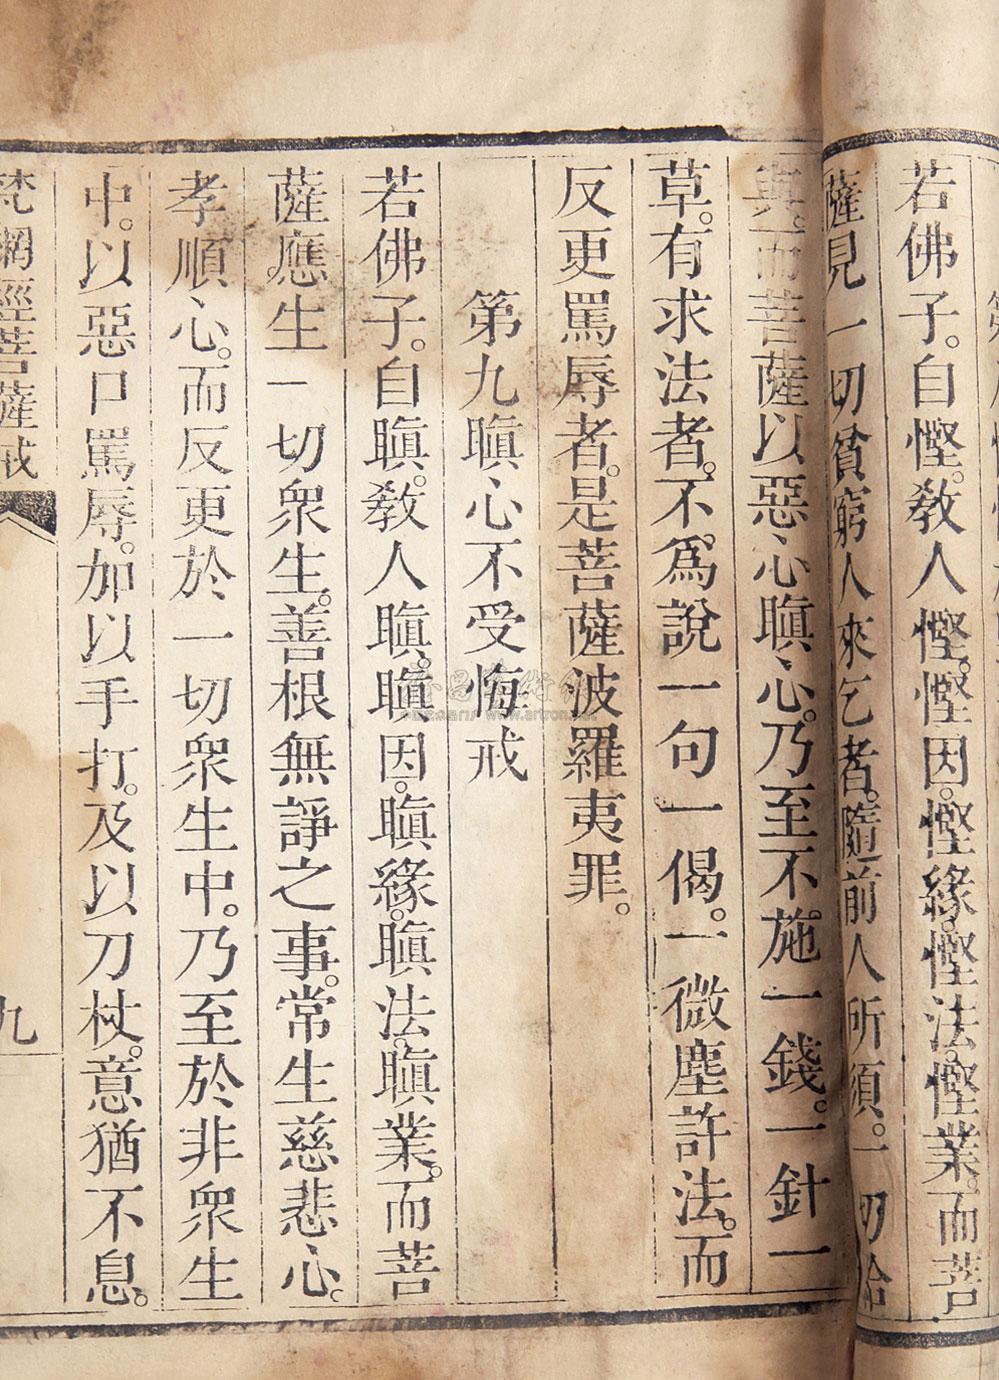 若佛子。自慳。教人慳。慳因。慳緣。慳法。慳業。而菩
薩見一切貧窮人來乞者。隨前人所須。一切給
與。而菩薩以惡心瞋心。乃至不施一錢。一針一
草。有求法者。不爲說一句一偈。一微塵許法。而
反更罵辱者。是菩薩波羅夷罪。
第九瞋心不受悔戒
若佛子。自瞋。教人瞋。瞋因。瞋緣。瞋法。瞋業。而菩
薩應生一切衆生。善根無諍之事。常生慈悲心。
孝順心。而反更於一切衆生中。乃至於非衆生
中。以惡口罵辱。加以手打。及以刀杖。意猶不息。
梵網經菩薩戒
九